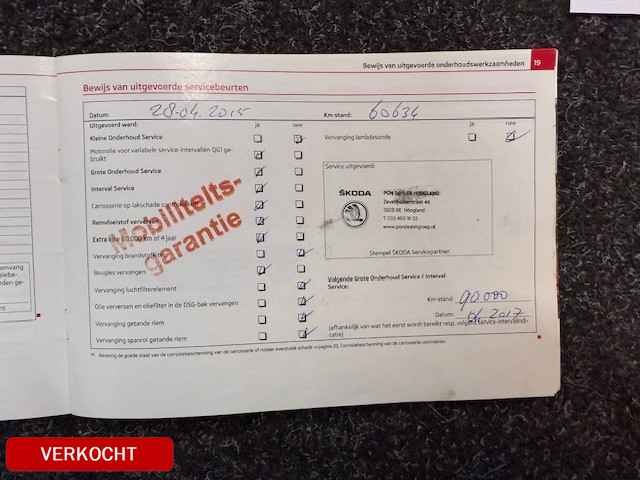 Bewijs van uitgevoerde onderhoudswerkzaamheden 19
Bewijs van uitgevoerde servicebeurten
Datum: 28-04-2015 Km-stand: 60634
Uitgevoerd werd: ja nee ja nee
Kleine Onderhoud Service
Vervanging lambdasonde
Motorolie voor variabele service-intervallen QG1 ge-
bruikt
Grote Onderhoud Service
Interval Service
Carrosserie op lakschade
Remvloeistof verversen
Extra
km of 4 jaar
Vervanging
Bougies vervangen
Vervanging luchtfilterelement
Olie verversen en oliefilter in de DSG-bak vervangen
Vervanging getande riem
Vervanging spanrol getande riem
Mobiliteits-
garantie
Service uitgevoerd:
ŠKODA
Hoogland
www.pondealergroep.nl
Stempel ŠKODA Servicepartner
Volgende Grote Onderhoud Service / Interval
Service:
Km-stand: 90.000
Datum: 2017
(afhankelijk van wat het eerst wordt bereikt resp. volgens service-intervalindi-
catie)
VERKOCHT